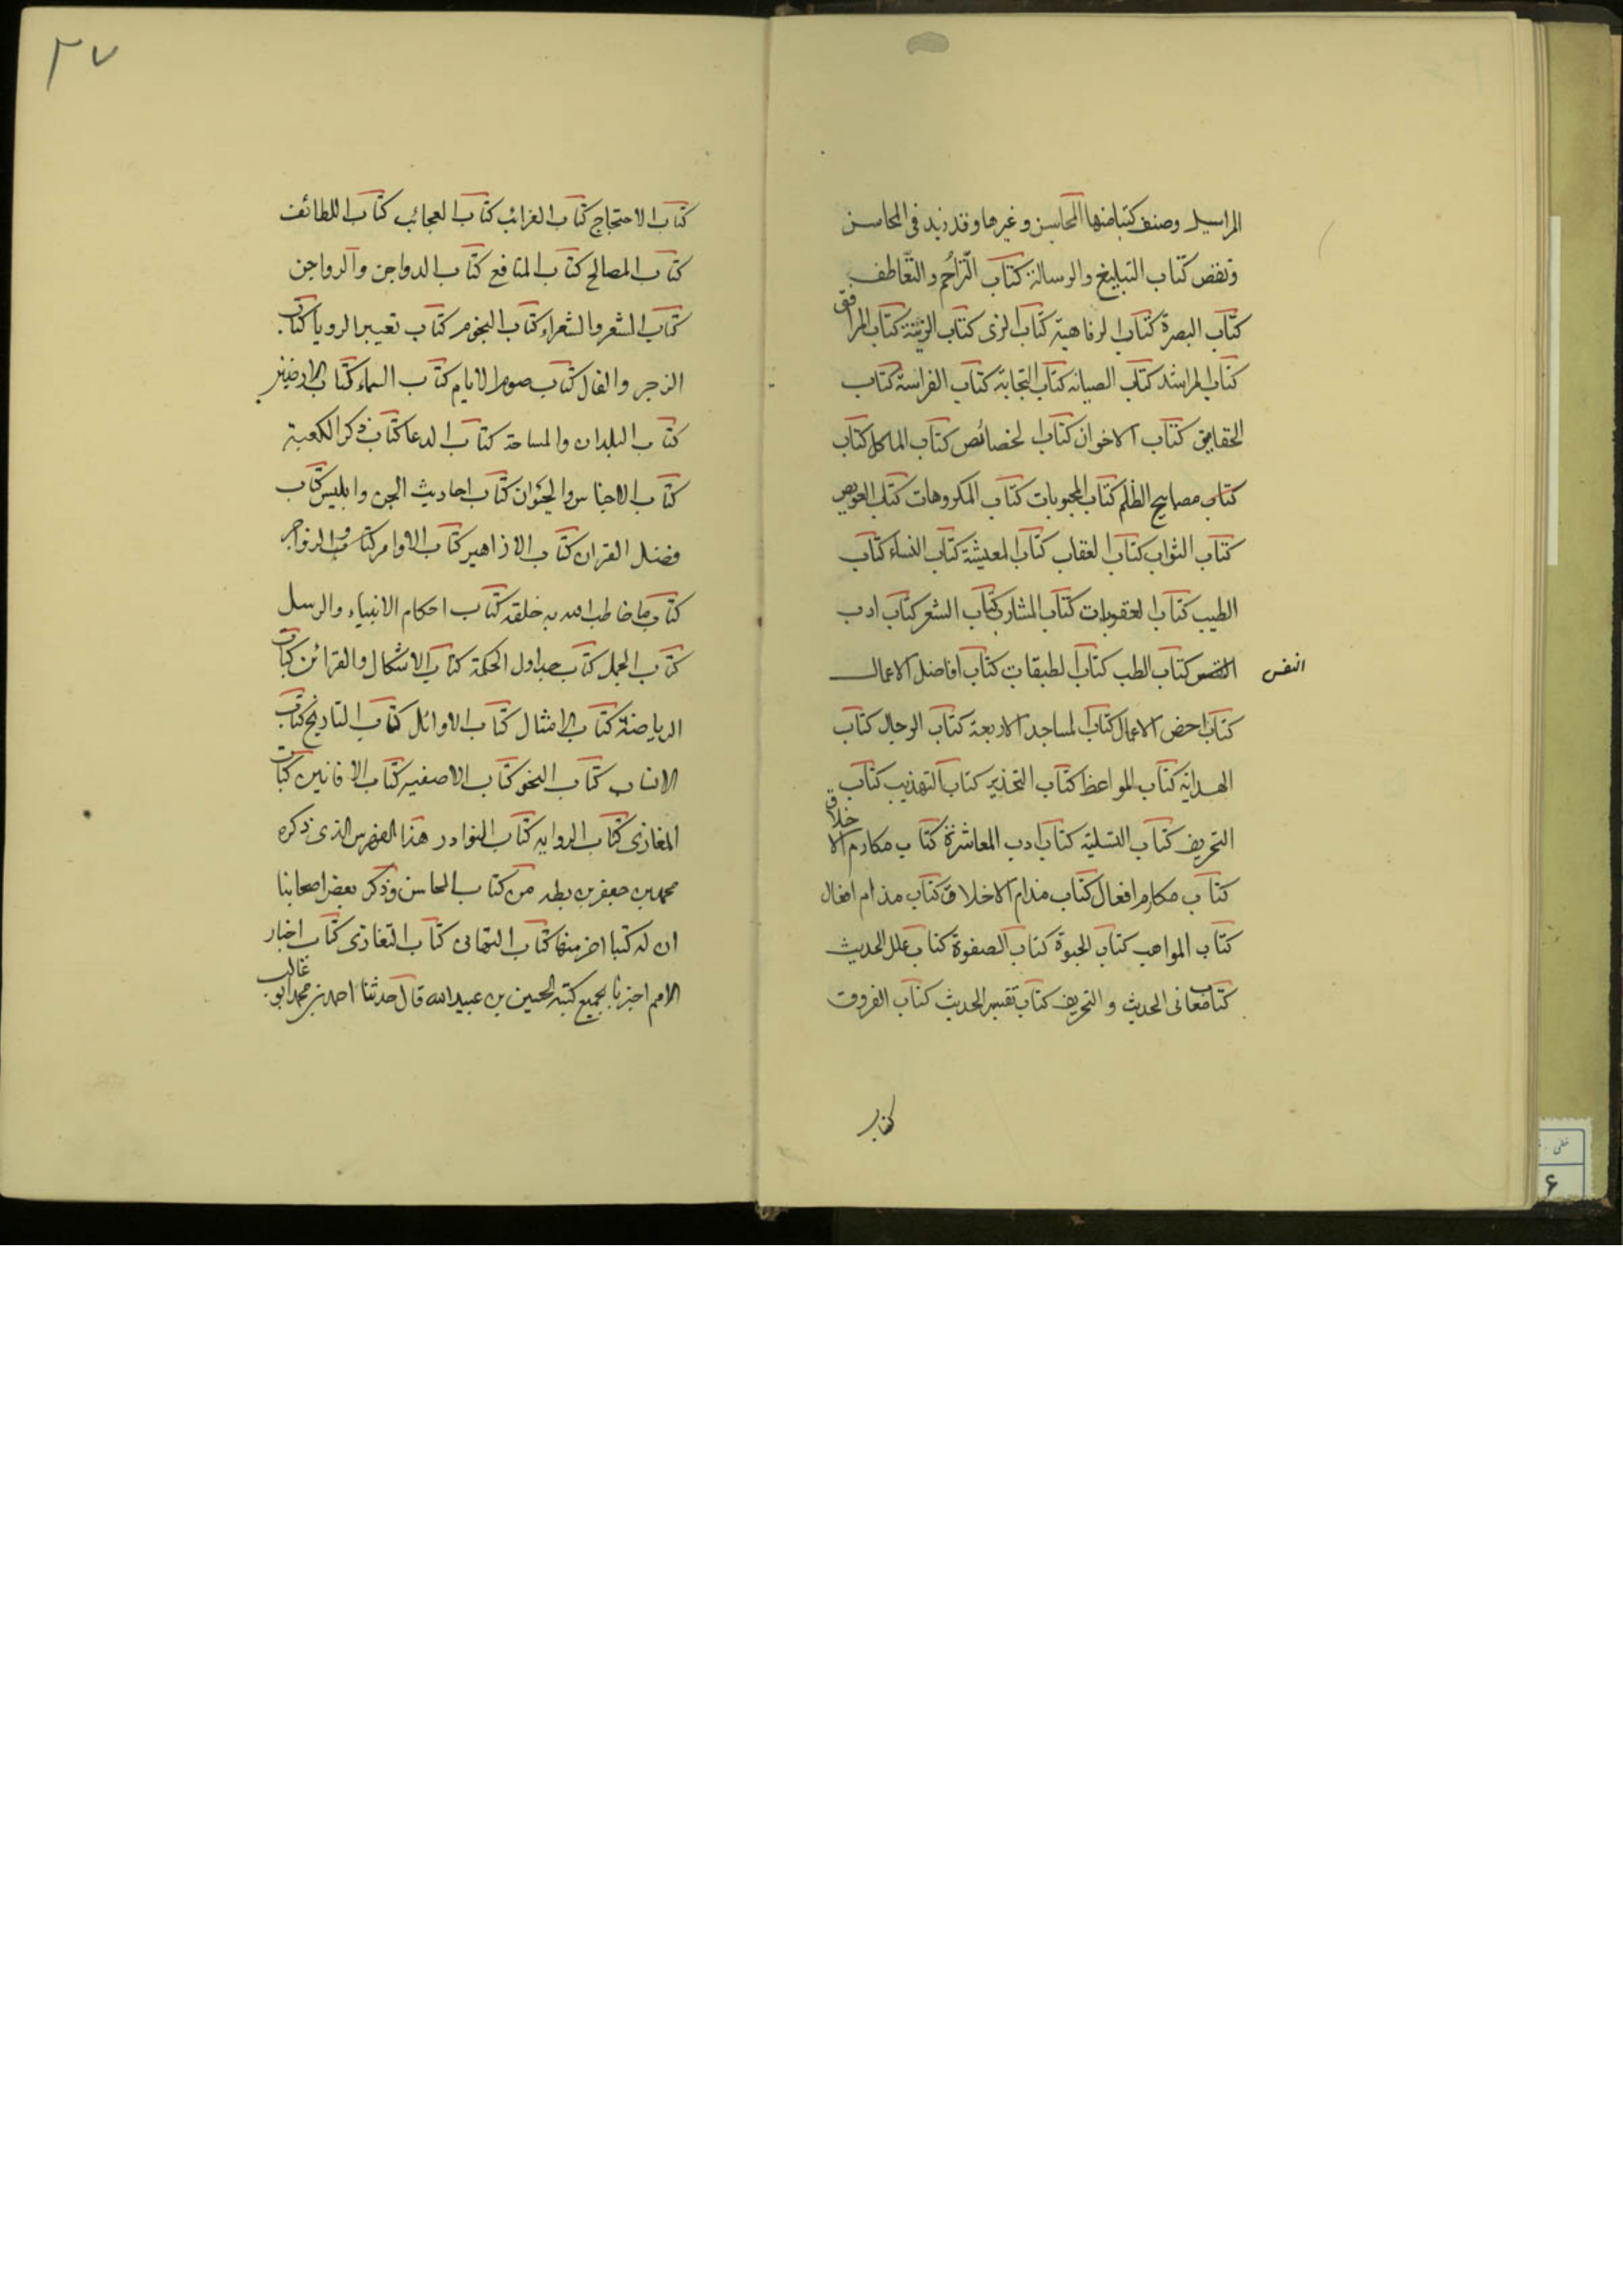 المراسيل وصنف كتبا منها المحاسن وغيرها وقد زيد فى المحاسن
ونقص كتاب التبليغ والرسالة كتاب التراحُم والتّعاطف
كتاب البصرة كتاب الرفاهية كتاب الزى كتاب الزينة كتاب المرافق
كتاب المراشد كتاب الصيانه كتاب النجابة كتاب الفراسة كتاب
الحقايق كتاب الاخوان كتاب الخصائص كتاب الماكل كتاب
كتاب مصابيح الظلم كتاب المحبوبات كتاب المكروهات كتاب العويص
كتاب الثواب كتاب العقاب كتاب المعيشة كتاب النساء كتاب
الطيب كتاب العقوبات كتاب المشارب كتاب الشعر كتاب ادب
النفس كتاب الطب كتاب الطبقات كتاب افاضل الاعمال
النفس
كتاب اخص الاعمال كتاب المساجد الاربعة كتاب الرجال كتاب
الهداية كتاب المواعظ كتاب التحذير كتاب التهذيب كتاب
التحريف كتاب التسلية كتاب ادب المعاشرة كتاب مكارم الاخلاق
كتاب مكارم افعال كتاب مذام الاخلاق كتاب مذام افعال
كتاب المواهب كتاب الحبوة كتاب الصفوة كتاب علل الحديث
كتاب معانى الحديث و التحريف كتاب تفسير الحديث كتاب الفروق
كتاب
٣٧
كتاب الاحتجاج كتاب الغرائب كتاب العجائب كتاب اللطائف
كتاب المصالح كتاب المنافع كتاب الدواجن والرواجن
كتاب الشعر والشعراء كتاب النجوم كتاب تعبير الرويا كتاب
الزجر والفال كتاب صوم الايام كتاب السماء كتاب الارضين
كتاب البلدان والمساحة كتاب الدعا كتاب ذكر الكعبة
كتاب الاجناس والحيوان كتاب احاديث الجن وابليس كتاب
فضل القران كتاب الازاهير كتاب الاوامر والزواجر
كتاب ما خاطب الله به خلقه كتاب احكام الانبياء والرسل
كتاب الجمل كتاب جداول الحكمة كتاب الاشكال والقرائن كتاب
الرياضة كتاب الامثال كتاب الاوائل كتاب التاريخ كتاب
الانساب كتاب النحو كتاب الاصفيه كتاب الافانين كتاب
المغازى كتاب الروايه كتاب النوادر هذا الفهرس الذى ذكره
محمد بن جعفر بن بطه من كتاب المحاسن وذكر بعض اصحابنا
ان له كتبا اخر منها كتاب التهانى كتاب التعازى كتاب اخبار
الامم اخبرنا بجميع كتبه الحسين بن عبيد الله قال حدثنا احمد بن محمد ابو غالب